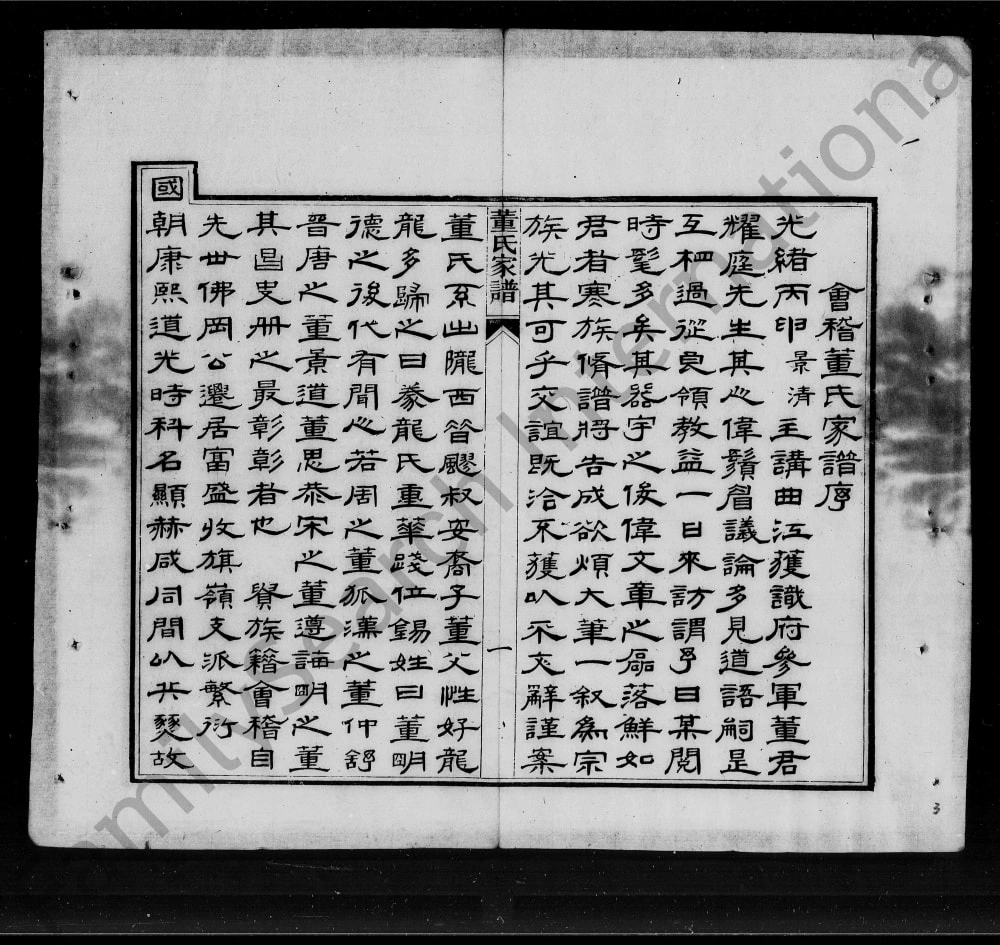 會稽董氏家譜序
光緒丙申景清主講曲江獲識府參軍董君
耀庭先生其心偉鬚眉議論多見道語嗣是
互相過從良領教益一日來訪謂予曰某閱
時髦多矣其器宇之俊偉文章之磊落鮮如
君者寒族脩譜將告成欲煩大筆一敘為宗
族光其可乎交誼既洽不獲以不文辭謹案
董氏家譜
一
董氏系出隴西昔飂叔安裔子董父性好龍
龍多歸之曰豢龍氏重華踐位錫姓曰董明
德之後代有聞人若周之董狐漢之董仲舒
晉唐之董景道董思恭宋之董遵誨明之董
其昌史冊之最彰彰者也 貴族籍會稽自
先世佛岡公遷居富盛牧旗嶺支派繁衍
國
朝康熙道光時科名顯赫咸同間以兵燹故
3
FamilySearch International